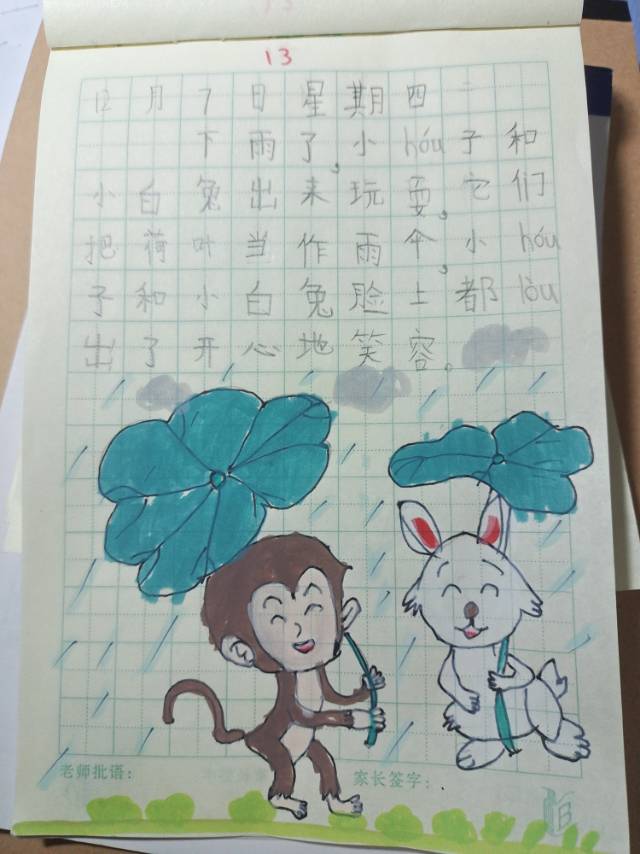 13
12月7日星期四
下雨了,小hóu子和
小白兔出来玩耍。它们
把荷叶当作雨伞。小hóu
子和小白兔脸上都lòu
出了开心地笑容。
老师批语:
家长签字: